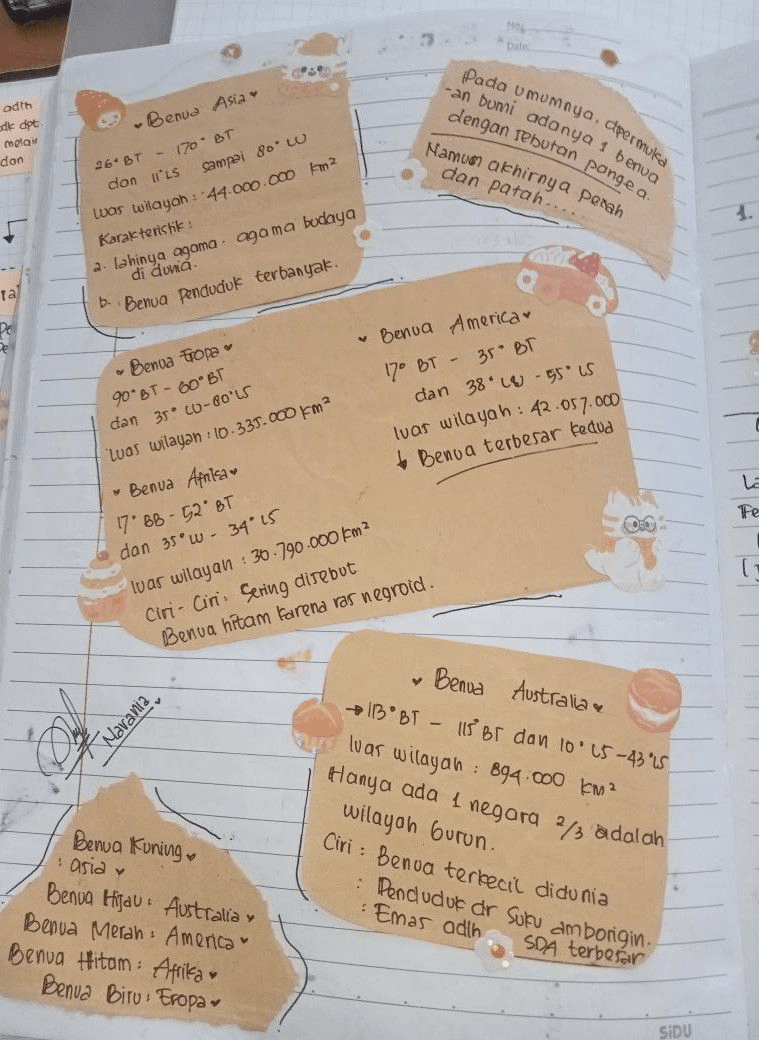 No:
Date:
Benua Asia
26° BT - 170° BT
dan 11°LS sampai 80° LU
luas wilayah : 44.000.000 km²
Karakteristik :
a. lahinya agama- agama budaya
di dunia.
b. Benua Penduduk terbanyak.
Pada umumnya, dipermuka
-an bumi adanya 1 benua
dengan sebutan pangea.
Namun akhirnya pecah
dan patah....
Benua Eropa
90° BT - 60° BT
dan 35° LU-80° LS
Luas wilayah : 10.335.000 km²
Benua Afrika
17° BB - 52° BT
dan 35° LU - 34° LS
luas wilayah : 30.790.000 km²
Ciri - Ciri : Sering disebut
Benua hitam karena ras negroid.
Benua America
17° BT - 35° BT
dan 38° LU - 55° LS
luas wilayah : 42.057.000
↓ Benua terbesar kedua
Benua Australia
→ 113° BT - 115° BT dan 10° LS -43° LS
luas wilayah : 894.000 km²
Hanya ada 1 negara 2/3 adalah
wilayah Gurun.
Ciri : Benua terkecil didunia
: Penduduk dr Suku amborigin.
: Emas adlh SDA terbesar
Navania
Benua Kuning
: asia
Benua Hijau : Australia
Benua Merah : America
Benua Hitam : Afrika
Benua Biru : Eropa
SiDU
adlh
dpt
dan
1.